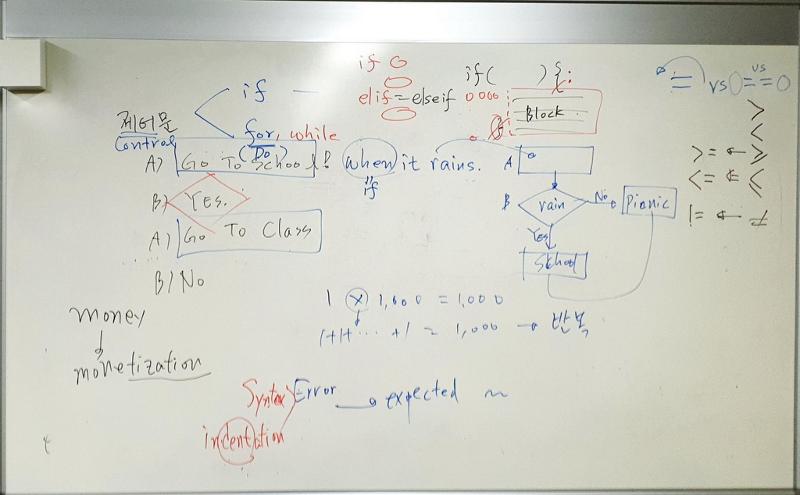 if O
if( ) {:
elif = elseif 0000
Block
= vs == 
vs
제어문
Control
if —
for, while
(Do)
>
<
>= ← ≥
<= ← ≤
!= ← ≠
A) Go To School! when it rains.
"if
B) Yes.
A) Go To Class
B) No
A
B rain
No
Picnic
Yes
School
1 × 1,000 = 1,000
1+1+ ... +1 = 1,000 → 반복
money
↓
monetization
Syntex Error → expected ~
indentation